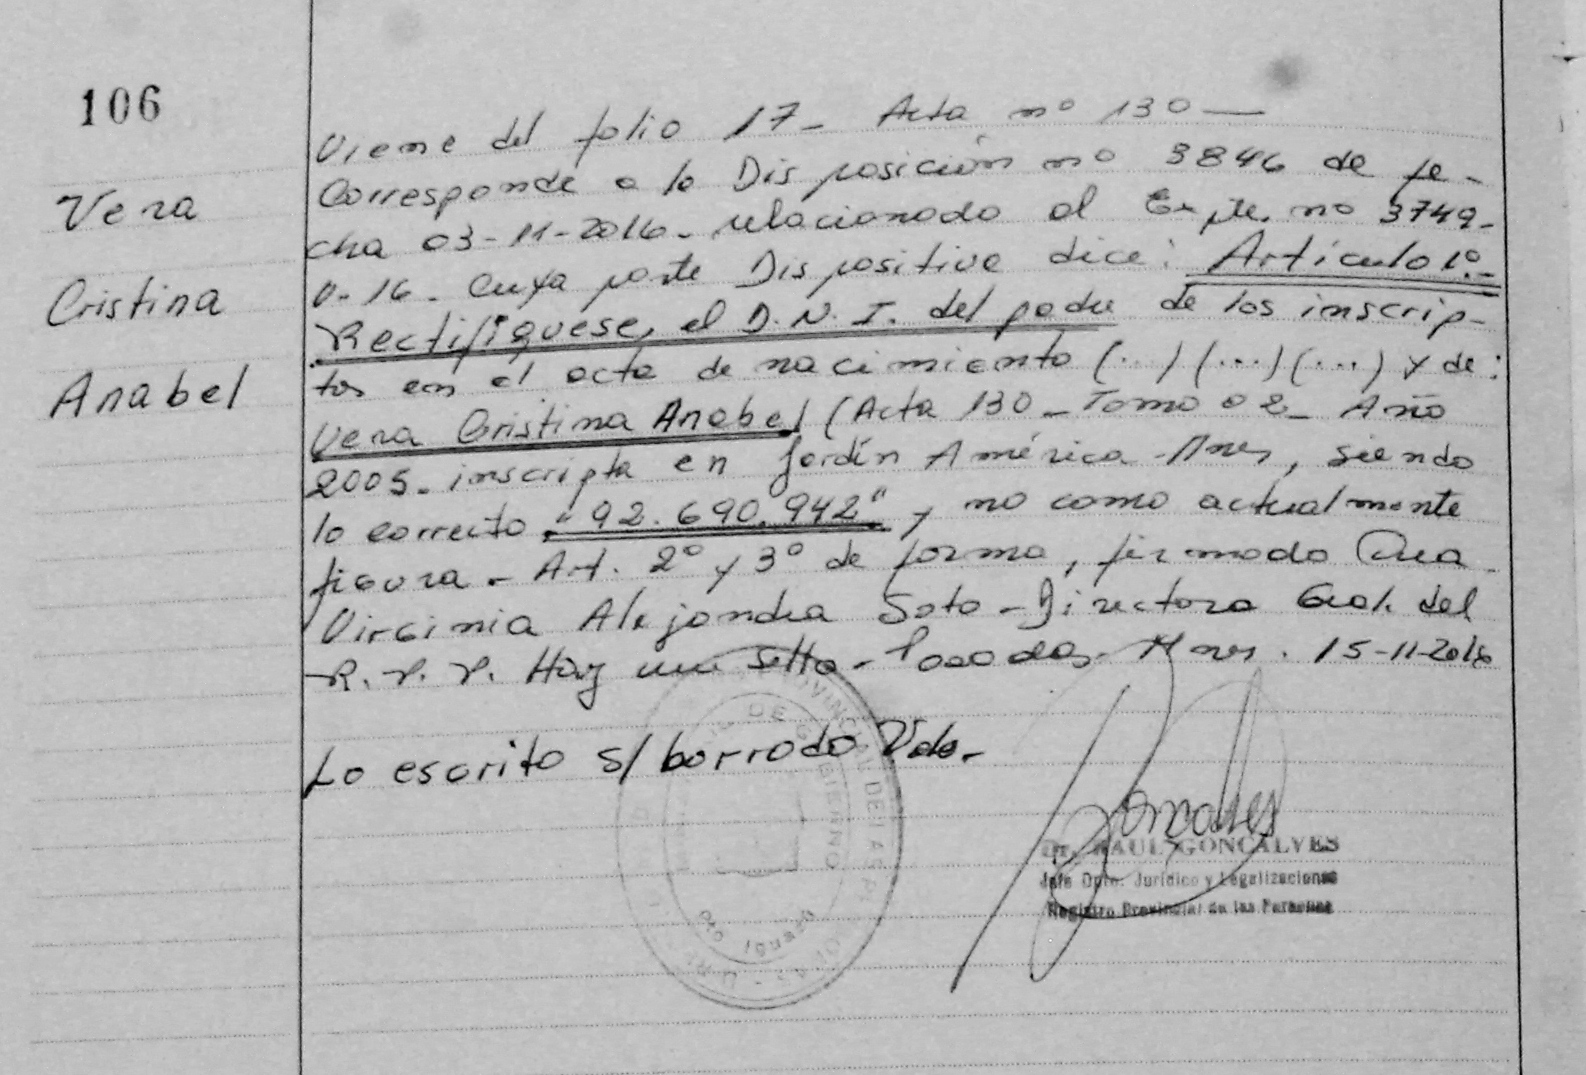 106
Vera
Cristina
Anabel
Viene del folio 17- Acta nº 130—
Corresponde a la Disposición nº 3846 de fe-
cha 03-11-2016- relacionado al Expte. nº 3749-
V-16. Cuya parte Dispositiva dice: Artículo 1º.-
Rectifíquese, el D.N.I. del padre de los inscrip-
tos en el acta de nacimiento (...) (...) (...) y de:
Vera Cristina Anabel (Acta 130- Tomo 02- Año
2005- inscripta en Jardín América-Mnes, siendo
lo correcto "92.690.942" y no como actualmente
figura- Art. 2º y 3º de forma, firmado
Virginia Alejandra Soto- Directora Gral. del
R.P.P. Hay un sello- Posadas- Mnes. 15-11-2016
Lo escrito s/ borrado Vale-
Dr. RAUL GONCALVES
Jefe Dpto. Jurídico y Legalizaciones
Registro Provincial de las Personas